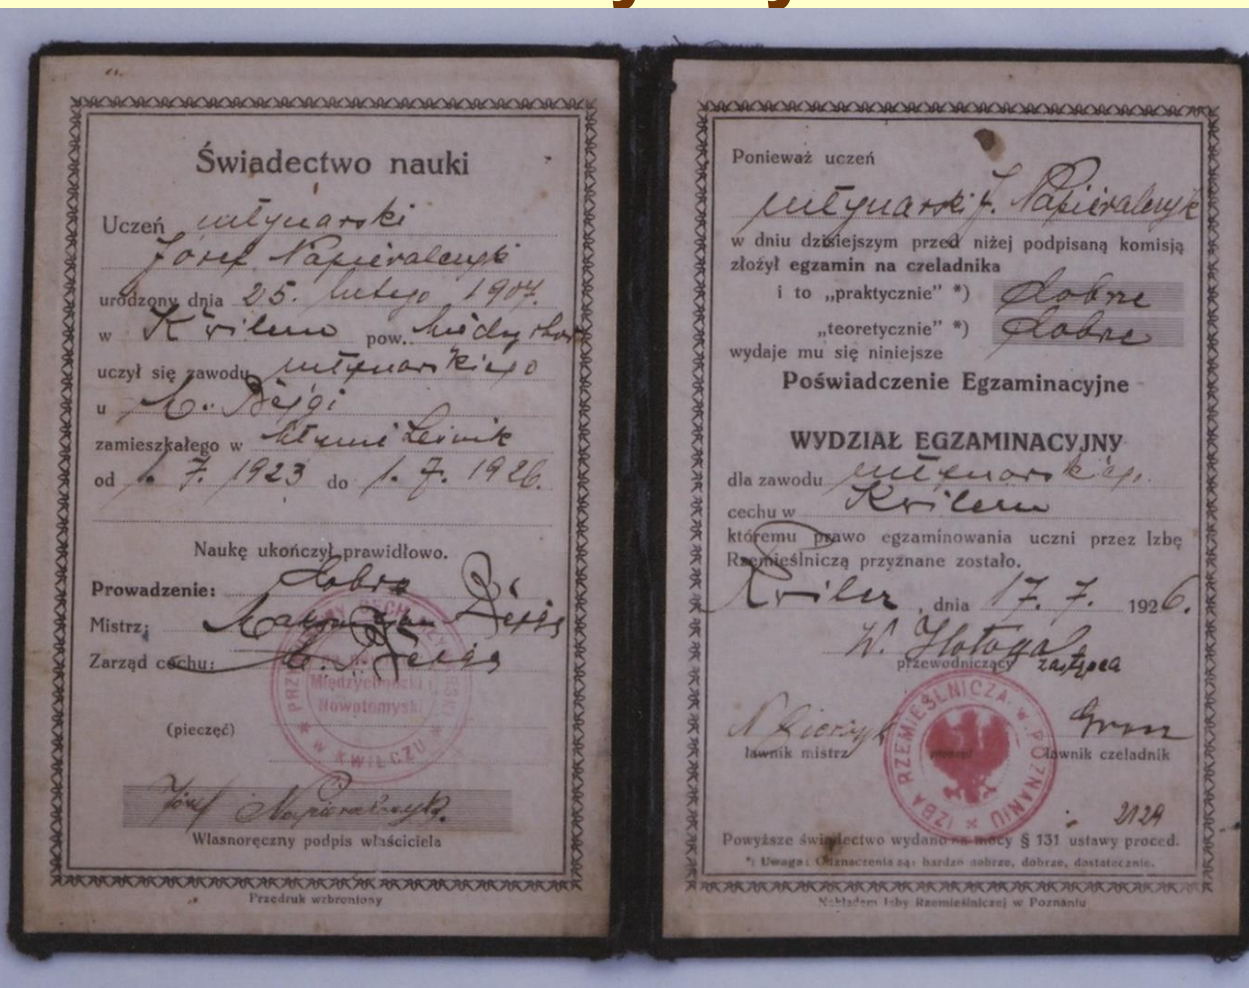 Świadectwo nauki
Uczeń młynarski
Józef Napieralczyk
urodzony dnia 25. lutego 1907.
w Kwilcu pow.
uczył się zawodu młynarskiego
u
zamieszkałego w
od 1. 7. 1923 do 1. 7. 1926.
Naukę ukończył prawidłowo.
Prowadzenie: dobre
Mistrz:
Zarząd cechu:
Międzychodzki i
Nowotomyski
w KWILCZU
(pieczęć)
Józef Napieralczyk
Własnoręczny podpis właściciela
Przedruk wzbroniony
Ponieważ uczeń
młynarski J. Napieralczyk
w dniu dzisiejszym przed niżej podpisaną komisją
złożył egzamin na czeladnika
i to „praktycznie” *) dobrze
„teoretycznie” *) dobrze
wydaje mu się niniejsze
Poświadczenie Egzaminacyjne
WYDZIAŁ EGZAMINACYJNY
dla zawodu młynarskiego
cechu w Kwilcu
któremu prawo egzaminowania uczni przez Izbę
Rzemieślniczą przyznane zostało.
, dnia 17. 7. 1926.
przewodniczący zastępca
ławnik mistrz ławnik czeladnik
IZBA RZEMIEŚLNICZA w POZNANIU
2129
Powyższe świadectwo wydano na mocy § 131 ustawy proced.
*) Uwaga: Oznaczenia są: bardzo dobrze, dobrze, dostatecznie.
Nakładem Izby Rzemieślniczej w Poznaniu